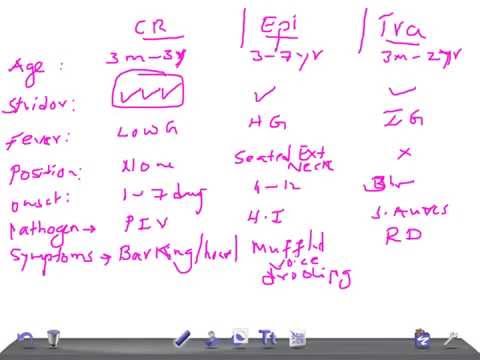 CR Epi Tra
Age: 3m-3y 3-7yr 3m-2yr
Stridor: ✓✓✓ ✓ ✓
Fever: Low G HG
Position: None Seated Ext Neck x
onset: 1-7 day 4-12
Pathogen → PIV H.I S. Aures
Symptoms → Barking/ Muffld voice drooling RD